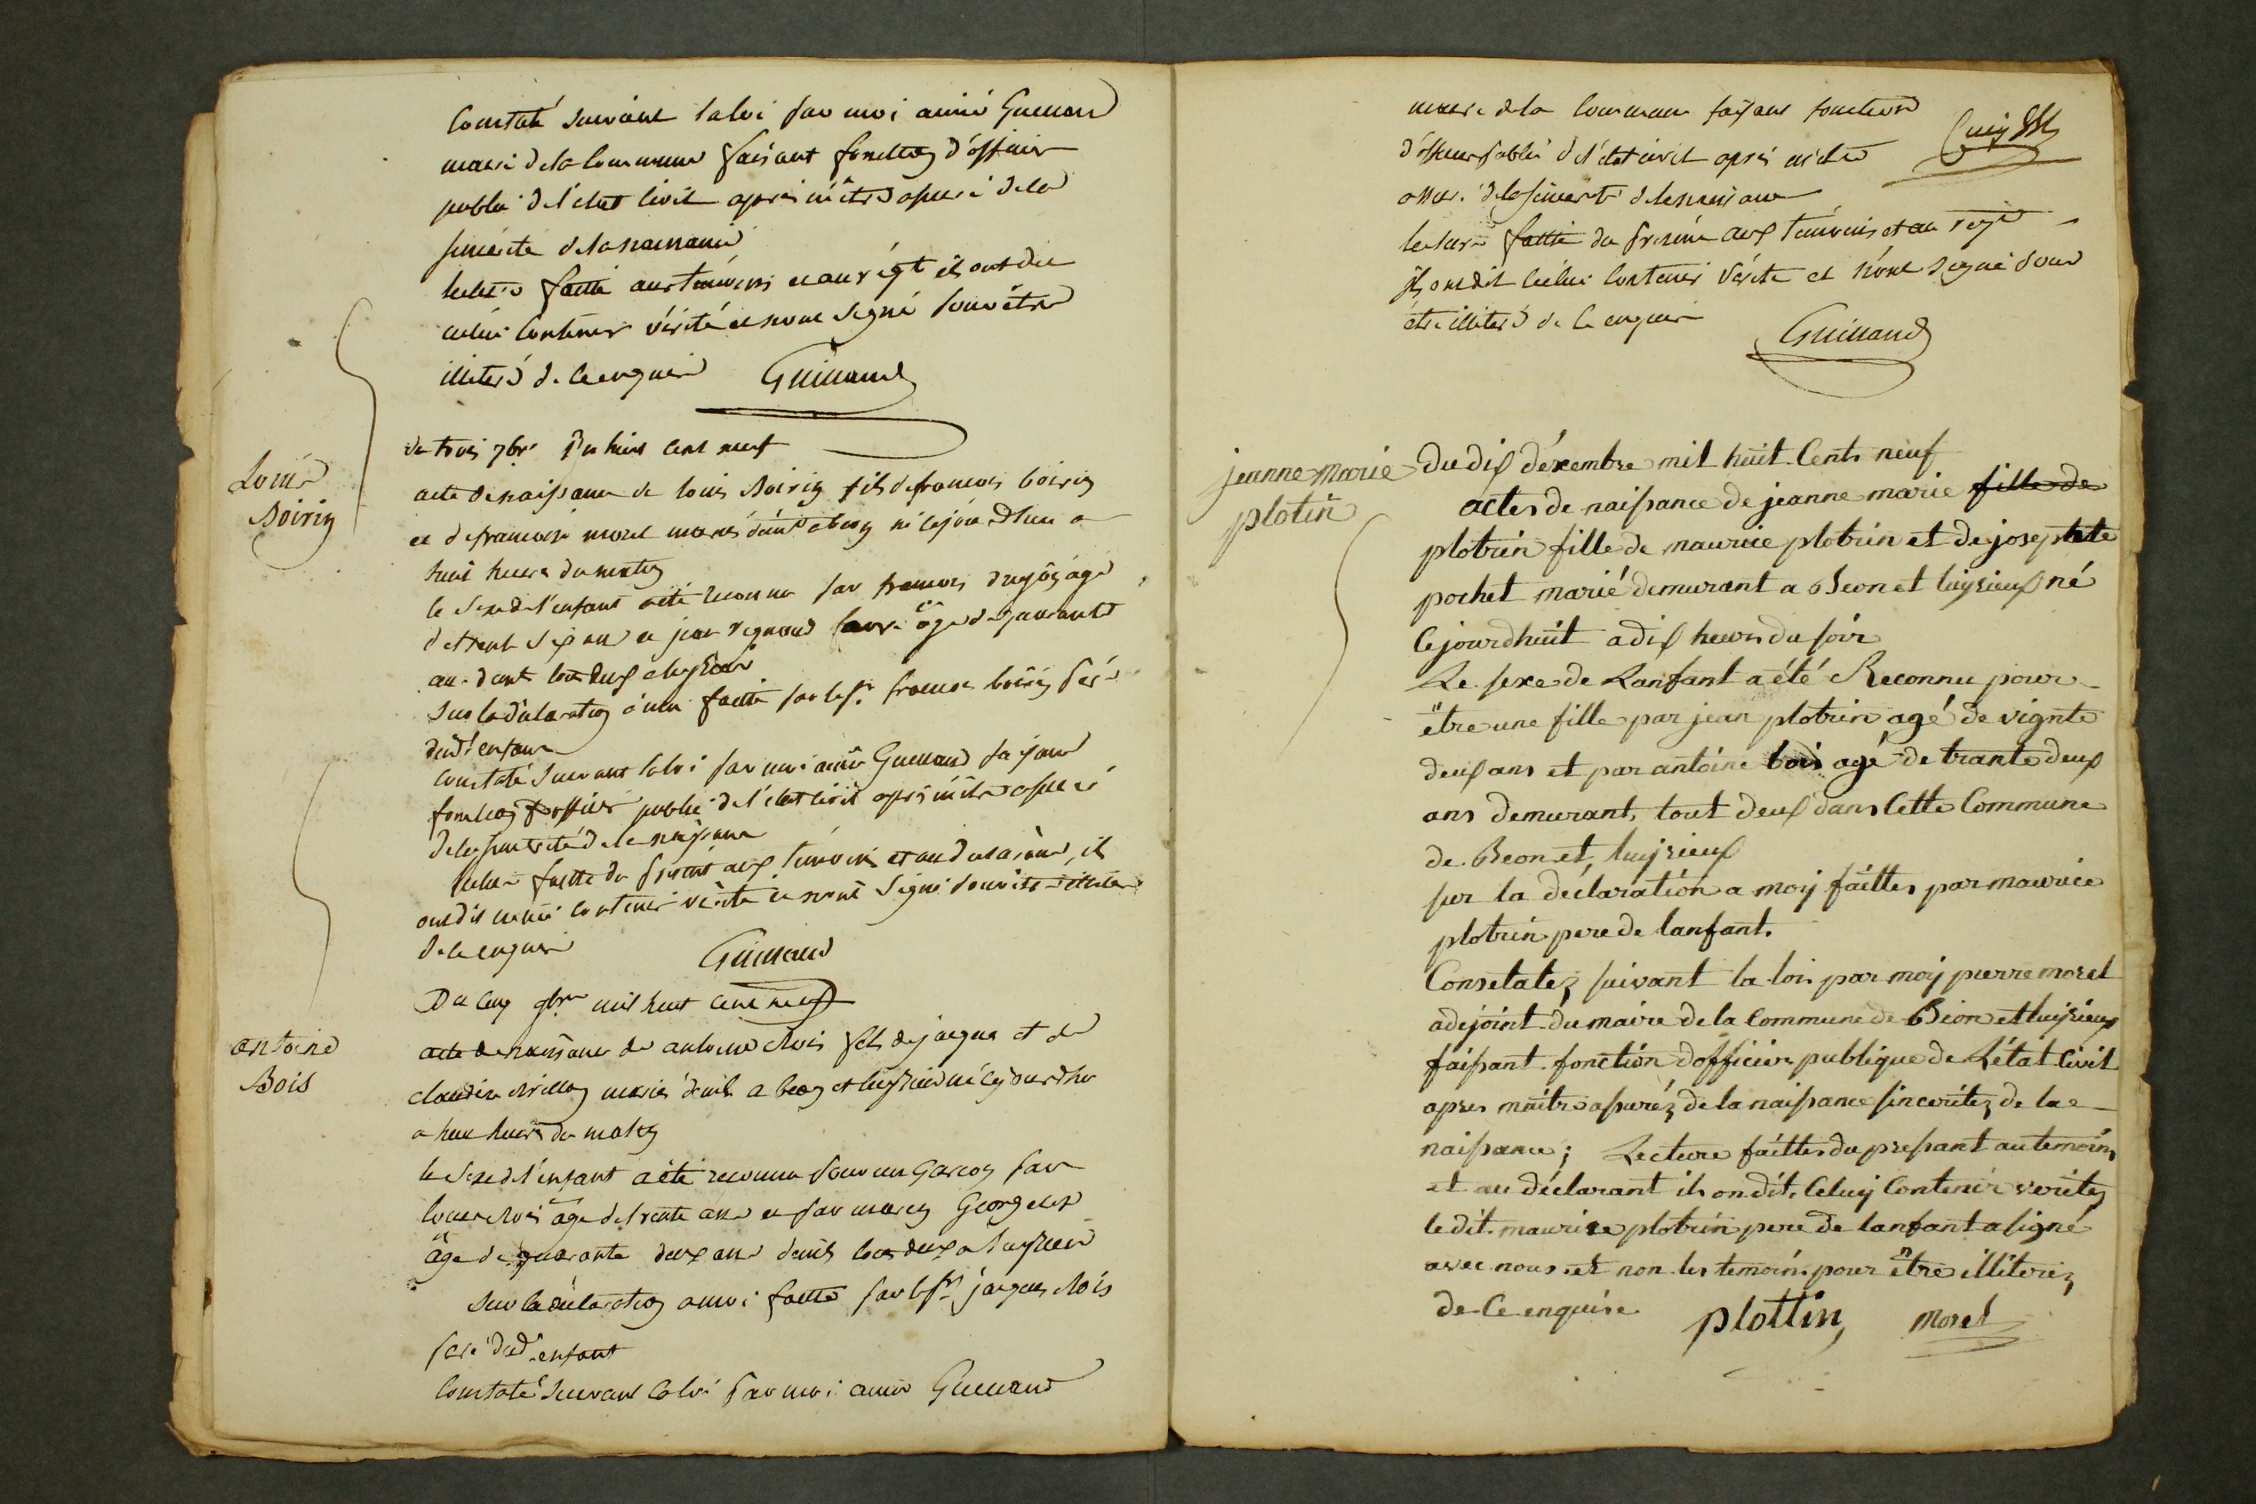 Constaté suivant la loi par moi aimé Guilland
maire de la Commune faisant fonction d'officier
public de l'état civil après m'être assuré de la
sincérité de la naissance
lecture faitte aux témoins et au req.t ils ont dit
celui contenir vérité et n'ont signé pour être
illiteré de ce enquis Guilland
Louis
Boirin
du trois 7br.e mil huit cent neuf
acte de naissance de louis Boirin fils de françois boirin
et de françoise morel mariés né cejourdhui a
huit heures du matin
le sexe de l'enfant a été reconnu par francois agé
de trente six ans et jean age de quarante
ans
sur la déclaration a moi faitte par le s.r francois boirin père
dud.t enfant
Constaté suivant la loi par moi aimé Guilland faisant
fonction d'officier public de l'état civil après m'être assuré
de la sincérité de la naissance
lecture faitte du présent aux témoins et au declarant, ils
ont dit celui contenir vérité et n'ont signé pour être illiteré
de ce enquis Guilland
antoine
Bois
Du cinq 9bre mil huit cent neuf
acte de naissance de antoine Bois fils de jacque et de
claudine mariés a beon et luyrieu né cejourdhui
a huit heures du matin
le sexe de l'enfant a été reconnu pour un garcon par
louis Bois age de trente ans et par Georges
âge de quarante deux ans tous deux a luyrieu
sur la déclaration a moi faitte par le s.r jacques Bois
père dud.t enfant
Constaté suivant la loi par moi aimé Guilland
maire de la Commune faisant fonction
d'officier public de l'état civil après m'être
assuré de la sincérité de la naissance
lecture faitte du présent aux témoins et au req.t
ils ont dit celui contenir vérité et n'ont signé pour
être illiteré de ce enquis
Guilland
jeanne marie
plotin
du dix déxembre mil huit Cents neuf
actes de naissance de jeanne marie fille de
plotin fille de maurice plotin et de josephte
pochet marié demurant a Beon et luyrieux né
Cejourdhuit a dix heures du soir
Le sexe de Lanfant a été Reconnu pour
être une fille par jean plotin agé de vignte
deux ans et par antoine bois agé de trante deux
ans demurant, tout deux dans Cette Commune
de Beon et, luyrieux
sur la déclaration a moy faittes par maurice
plotin pere de lanfant.
Constatez suivant la loi par moy pierre morel
adejoint du maire de la Commune de Beon et luyrieux
faisant fonction dofficier publique de L'état Civil
apres mêtre assuréz de la naissance sinceritez de la
naissance; Lecture faittes du presant au temoins
et au déclarant ils on dit, Celuy Contenir veritez
le dit maurice plotin pere de lanfant a signé
avec nous et non les temoins pour être illiteriez
de Ce enquise plottin Morel